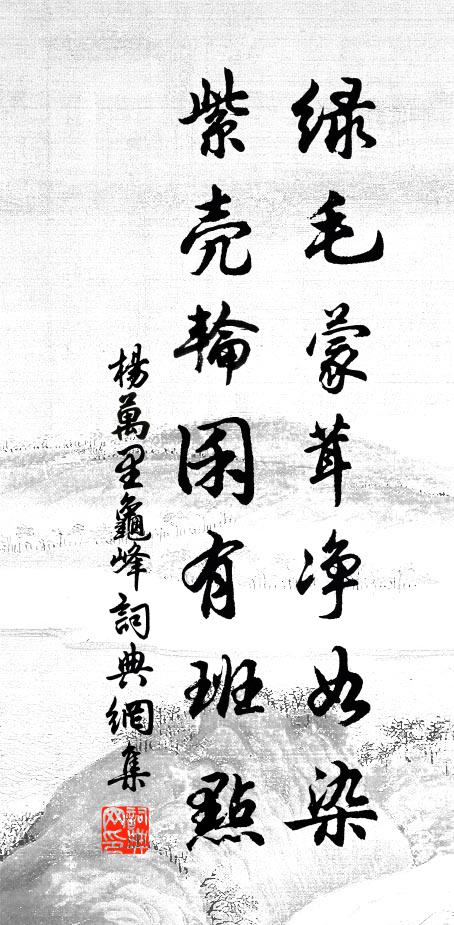 绿毛蒙茸净如染
紫壳轮囷有班點
楊萬里龜峰詞典網集